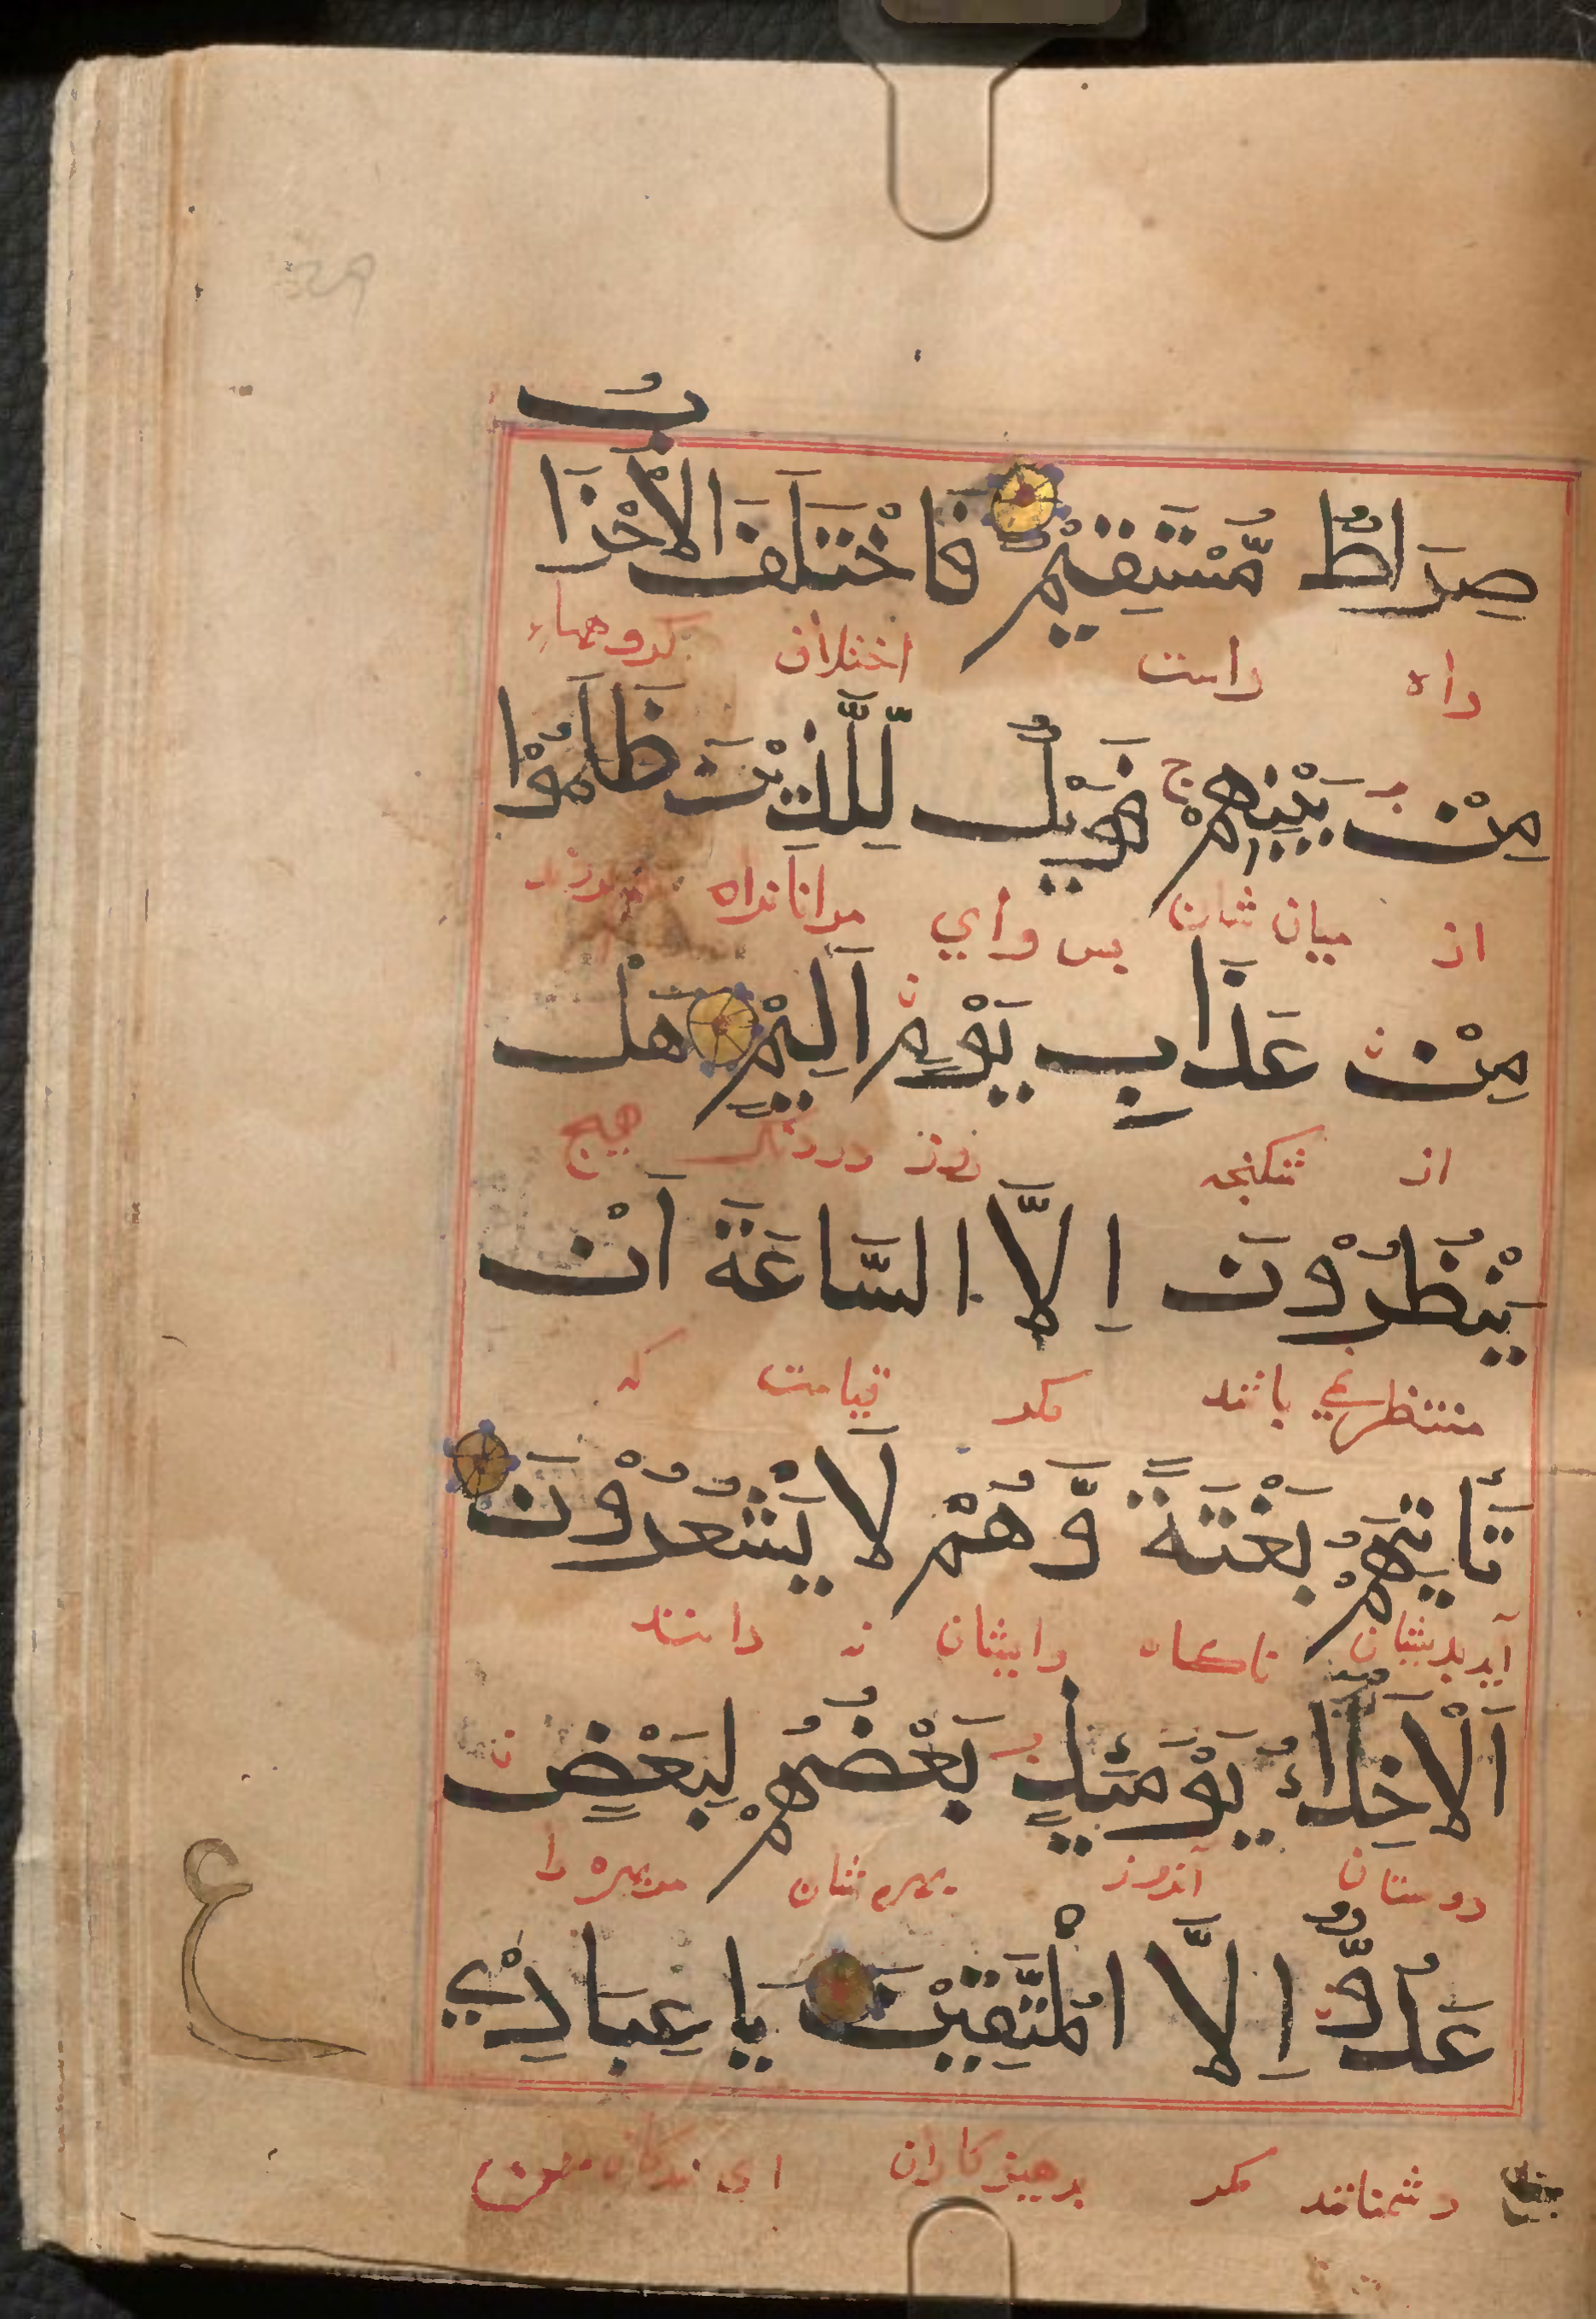 صِرَاطٌ مُّسْتَقِيْمٌ فَاخْتَلَفَ الْاَحْزَابُ
راه راست اختلاف کروهاء
مِنْ بَيْنِهِمْ ج فَوَيْلٌ لِّلَّذِيْنَ ظَلَمُوْا
از میان شان بس وای مرانانراه
مِنْ عَذَابِ يَوْمٍ اَلِيْمٍ هَلْ
از شکنجه روز دردناک هیچ
يَنْظُرُوْنَ اِلَّا السَّاعَةَ اَنْ
منتظر نمی باشند مکر قیامت که
تَأْتِيَهُمْ بَغْتَةً وَّهُمْ لَا يَشْعُرُوْنَ
آید بدیشان ناکاه وایشان نه دانند
اَلْاَخِلَّاءُ يَوْمَئِذٍ بَعْضُهُمْ لِبَعْضٍ
دوستان آنروز بهره شان مر بهره را
عَدُوٌّ اِلَّا الْمُتَّقِيْنَ يَا عِبَادِيْ
دشمنانند مکر برهیزکاران ای بندکان من
ع